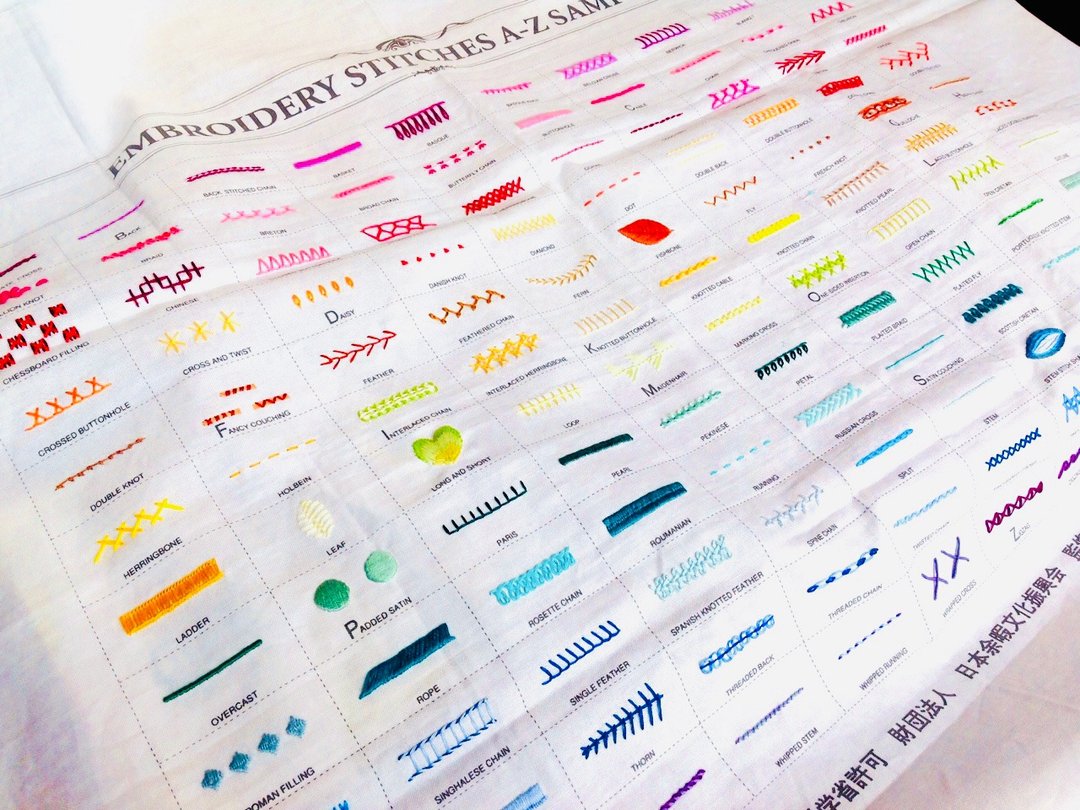 EMBROIDERY STITCHES A-Z SAMP
BACK
BACK STITCHED CHAIN
BASKET
BASQUE
BELGIAN CROSS
BLANKET
BRAID
BRETON
BROAD CHAIN
BUTTERFLY CHAIN
BUTTONHOLE
CABLE
CHAIN
LLION KNOT
CHINESE
CHESSBOARD FILLING
CROSS AND TWIST
DAISY
DANISH KNOT
DIAMOND
DOT
DOUBLE BACK
DOUBLE BUTTONHOLE
CROSSED BUTTONHOLE
FANCY COUCHING
FEATHER
FEATHERED CHAIN
FERN
FISHBONE
FLY
FRENCH KNOT
DOUBLE KNOT
HOLBEIN
INTERLACED CHAIN
INTERLACED HERRINGBONE
KNOTTED BUTTONHOLE
KNOTTED CABLE
KNOTTED CHAIN
KNOTTED PEARL
HERRINGBONE
LEAF
LONG AND SHORT
LOOP
MAIDENHAIR
MARKING CROSS
ONE SIDED INSERTION
OPEN CHAIN
OPEN CRETAN
LADDER
PADDED SATIN
PARIS
PEARL
PEKINESE
PETAL
PLATED BRAID
PLATED FLY
OVERCAST
ROPE
ROSETTE CHAIN
ROUMANIAN
RUNNING
RUSSIAN CROSS
SATIN COUCHING
SCOTTISH CRETAN
OMAN FILLING
SINGHALESE CHAIN
SINGLE FEATHER
SPANISH KNOTTED FEATHER
SPINE CHAIN
SPLIT
STEM
THORN
THREADED BACK
THREADED CHAIN
WHIPPED STEM
WHIPPED RUNNING
WHIPPED CROSS
ZIGZAG
学省許可 財団法人 日本余暇文化振興会